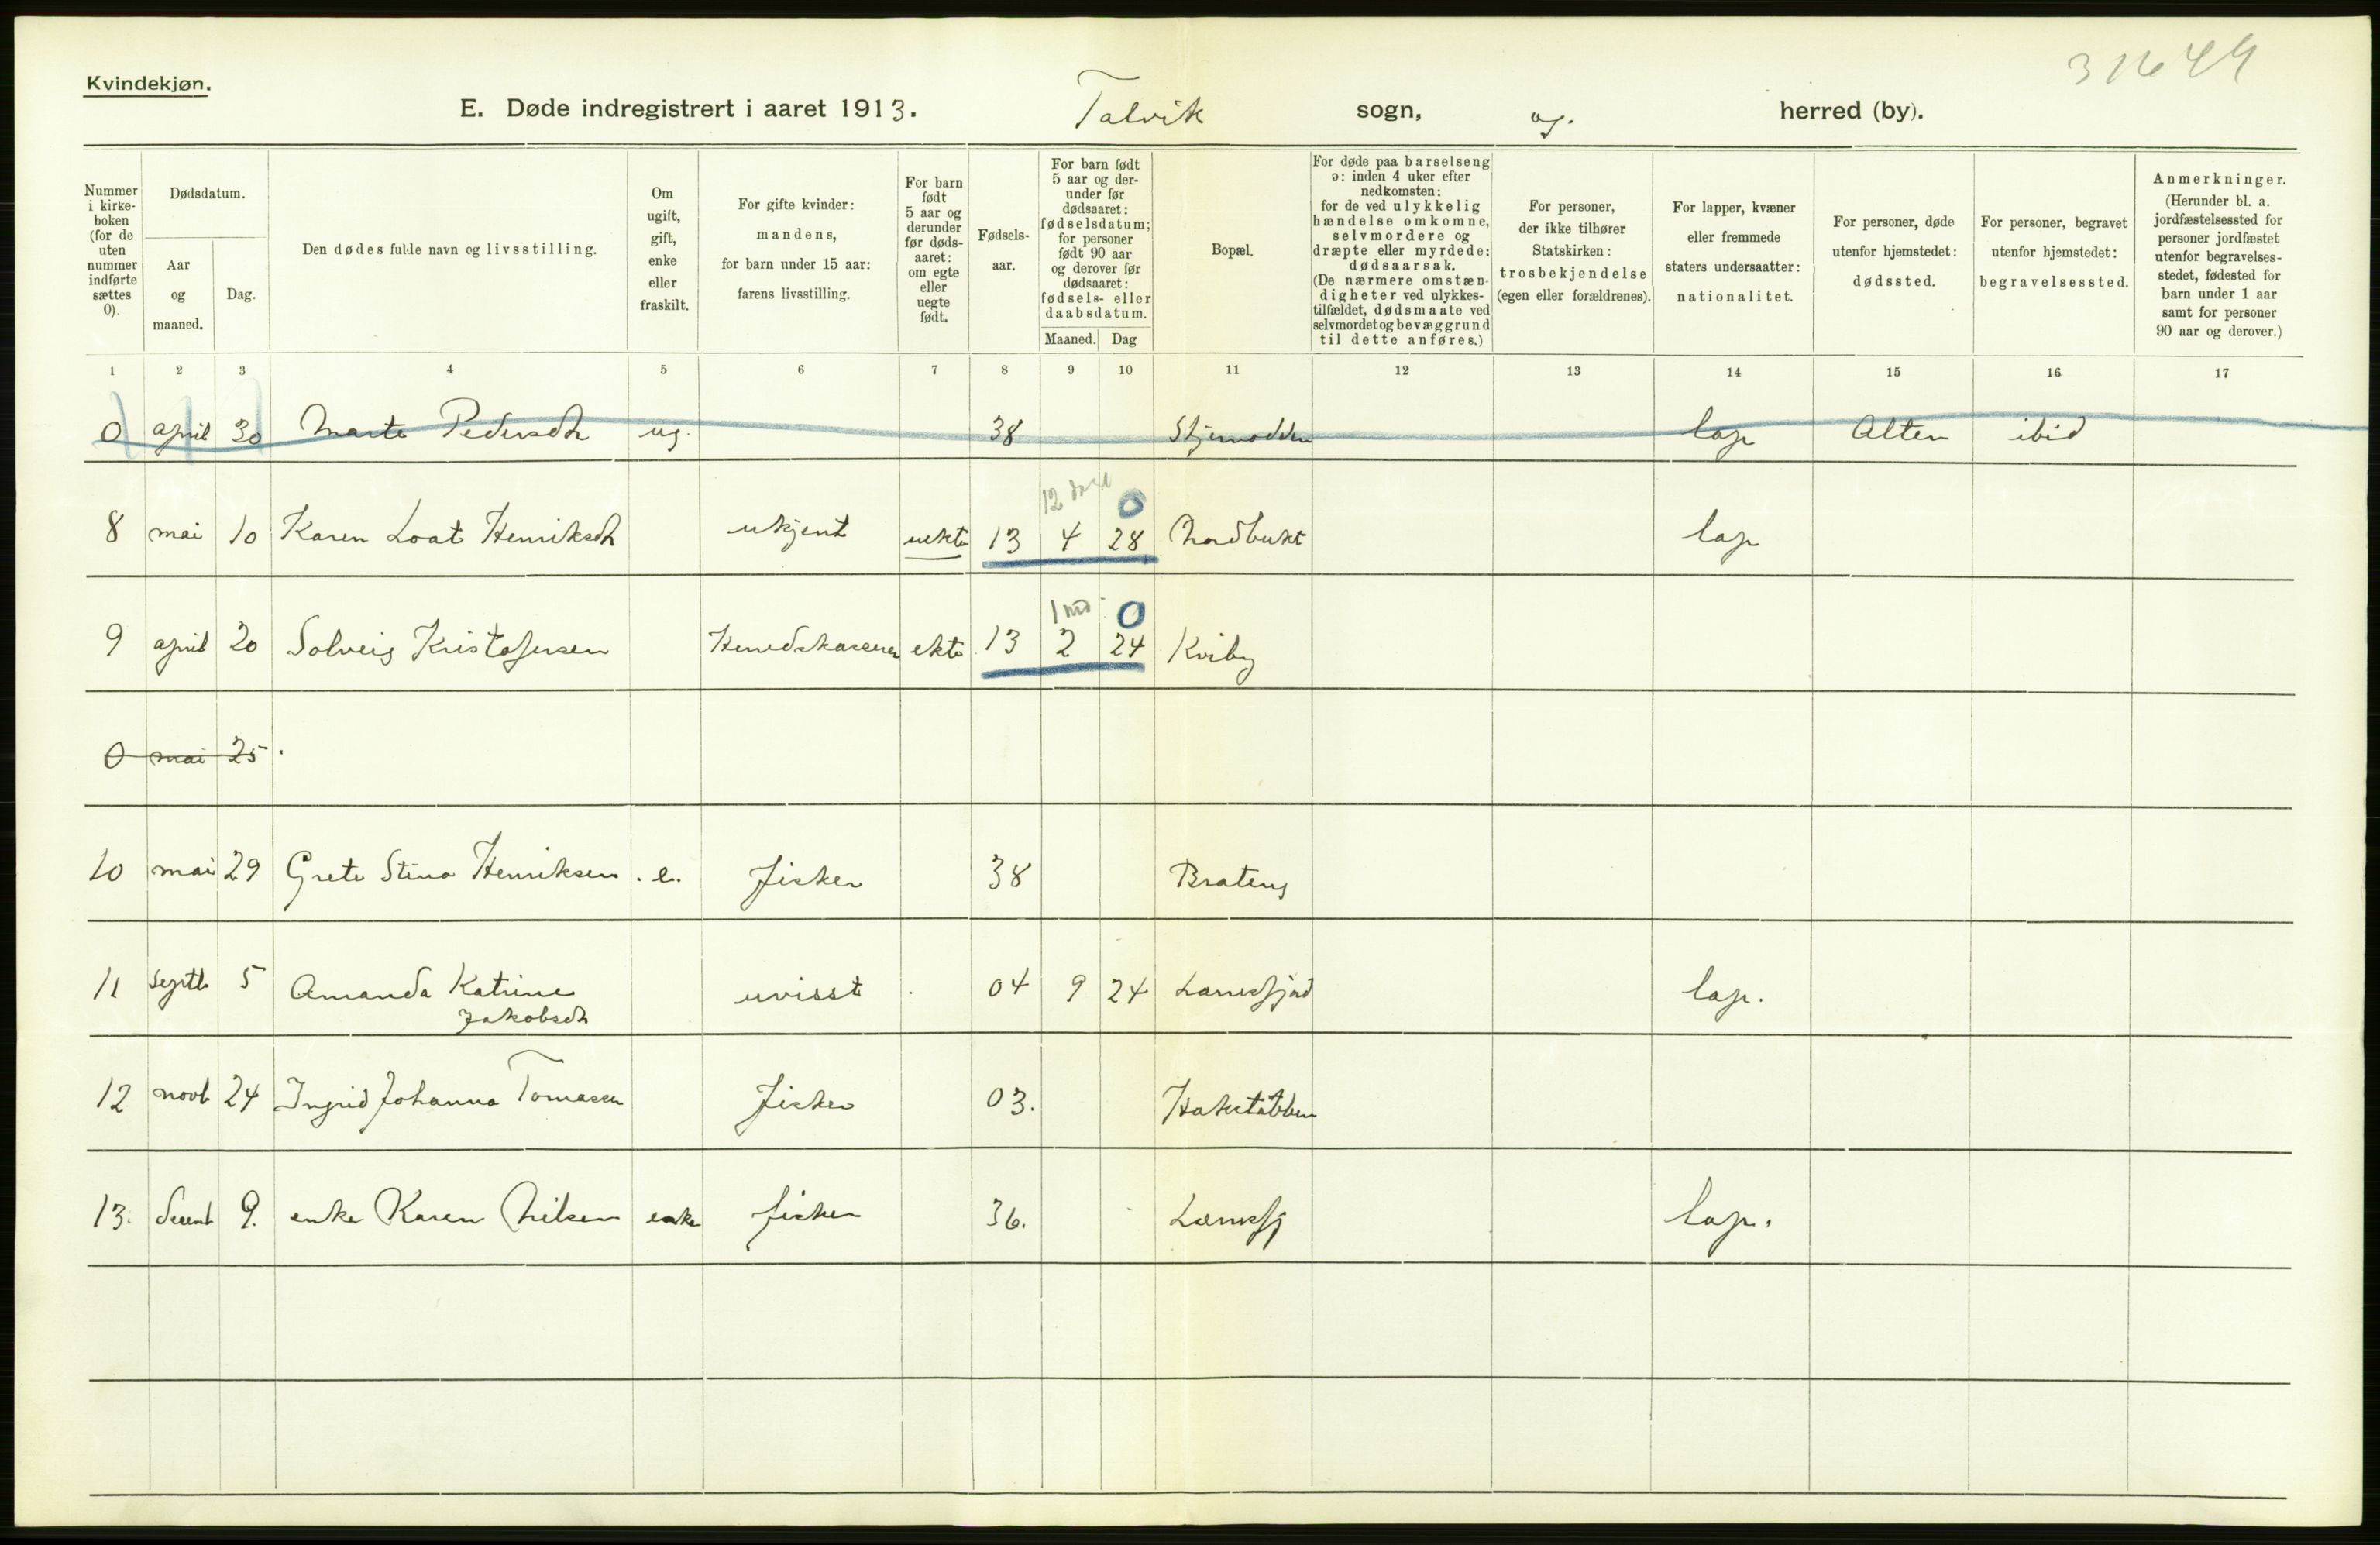 31644
Kvindekjøn.
E. Døde indregistrert i aaret 1913. Talvik sogn, og. herred (by).
Nummer i kirke-boken (for de uten nummer indførte sættes 0).
Dødsdatum.
Aar og maaned.
Dag.
Den dødes fulde navn og livsstilling.
Om ugift, gift, enke eller fraskilt.
For gifte kvinder: mandens, for barn under 15 aar: farens livsstilling.
For barn født 5 aar og derunder før døds-aaret: om egte eller uegte født.
Fødsels-aar.
For barn født 5 aar og der-under før dødsaaret: fødselsdatum; for personer født 90 aar og derover før dødsaaret: fødsels- eller daabsdatum.
Maaned. Dag
Bopæl.
For døde paa barselseng ɔ: inden 4 uker efter nedkomsten: for de ved ulykkelig hændelse omkomne, selvmordere og dræpte eller myrdede: dødsaarsak. (De nærmere omstæn-digheter ved ulykkes-tilfældet, dødsmaate ved selvmordet og bevæggrund til dette anføres.)
For personer, der ikke tilhører Statskirken: trosbekjendelse (egen eller forældrenes).
For lapper, kvæner eller fremmede staters undersaatter: nationalitet.
For personer, døde utenfor hjemstedet: dødssted.
For personer, begravet utenfor hjemstedet: begravelsessted.
Anmerkninger. (Herunder bl. a. jordfæstelsessted for personer jordfæstet utenfor begravelses-stedet, fødested for barn under 1 aar samt for personer 90 aar og derover.)
1 2 3 4 5 6 7 8 9 10 11 12 13 14 15 16 17
0 april 30 Marte Pedersdtr ug. 38 Stjernodden lap Alten ibid
12 dage 0
8 mai 10 Karen Loat Henriksdtr ukjent uekte 13 4 28 Nordbukt lap
1 md. 0
9 april 20 Solveig Kristofersen Herredskasserer ekte 13 2 24 Kviby
0 mai 25.
10 mai 29 Grete Stina Henriksen . e. fisker 38 Brateng
11 septb 5 Amanda Katrine uvisst . 04 9 24 Larnesfjord lap.
Jakobsdtr
12 novb 24 Ingrid Johanna Tomassen fisker 03. Hakstabben
13. decemb 9. enke Karen Nilsen enke fisker 36. lap.